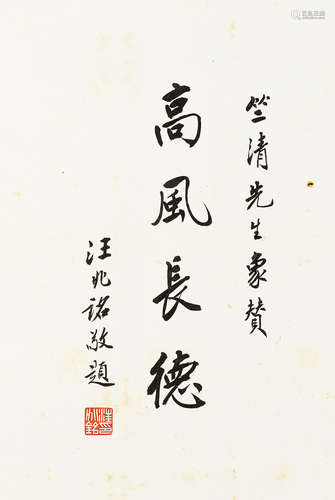 竺清先生象赞
高風長德
汪兆銘敬題
汪兆銘印